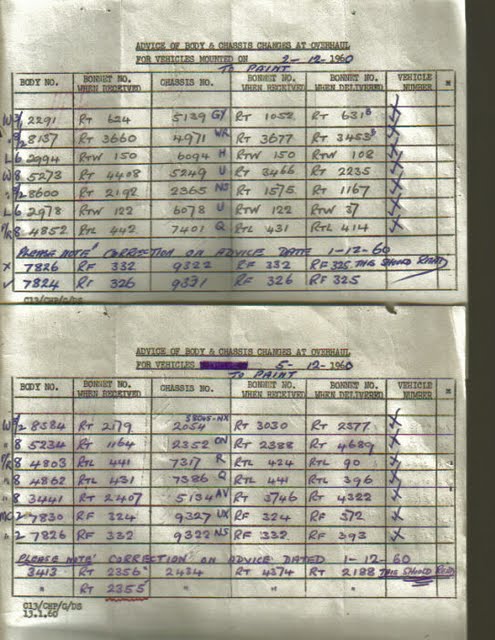 ADVICE OF BODY & CHASSIS CHANGES AT OVERHAUL
FOR VEHICLES MOUNTED ON 2-12-1960
TO PAINT
BODY NO. BONNET NO. WHEN RECEIVED CHASSIS NO. BONNET NO. WHEN RECEIVED BONNET NO. WHEN DELIVERED VEHICLE NUMBER *
2291 RT 624 5139 GY RT 1052 RT 631
8137 RT 3660 4971 WR RT 3677 RT 3453
L6 2994 RTW 150 6094 H RTW 150 RTW 108
W8 5273 RT 4408 5249 U RT 3466 RT 2235
8600 RT 2192 2365 NS RT 1575 RT 1167
L6 2978 RTW 122 6078 U RTW 122 RTW 37
8 4852 RTL 442 7401 Q RTL 431 RTL 414
PLEASE NOTE' CORRECTION ON ADVICE DATE 1-12-60
x 7826 RF 332 9322 RF 332 RF 325 THIS SHOULD READ
✓ 7824 RF 326 9331 RF 326 RF 325
C13/CHP/G/DS
ADVICE OF BODY & CHASSIS CHANGES AT OVERHAUL
FOR VEHICLES 5-12-1960
TO PAINT
BODY NO. BONNET NO. WHEN RECEIVED CHASSIS NO. BONNET NO. WHEN RECEIVED BONNET NO. WHEN DELIVERED VEHICLE NUMBER *
8584 RT 2179 2054 RT 3030 RT 2577
8 5234 RT 1164 2352 ON RT 2388 RT 4689
8 4803 RTL 441 7317 R RTL 424 RTL 90
8 4862 RTL 431 7386 Q RTL 441 RTL 396
8 3441 RT 2407 5134 AV RT 3746 RT 4322
7830 RF 324 9327 UX RF 324 RF 372
2 7826 RF 332 9322 NS RF 332 RF 393
PLEASE NOTE' CORRECTION ON ADVICE DATED 1-12-60
3413 RT 2356 2434 RT 4374 RT 2188 THIS SHOULD READ
" RT 2355 " " "
C13/CHP/G/DS
13.1.60